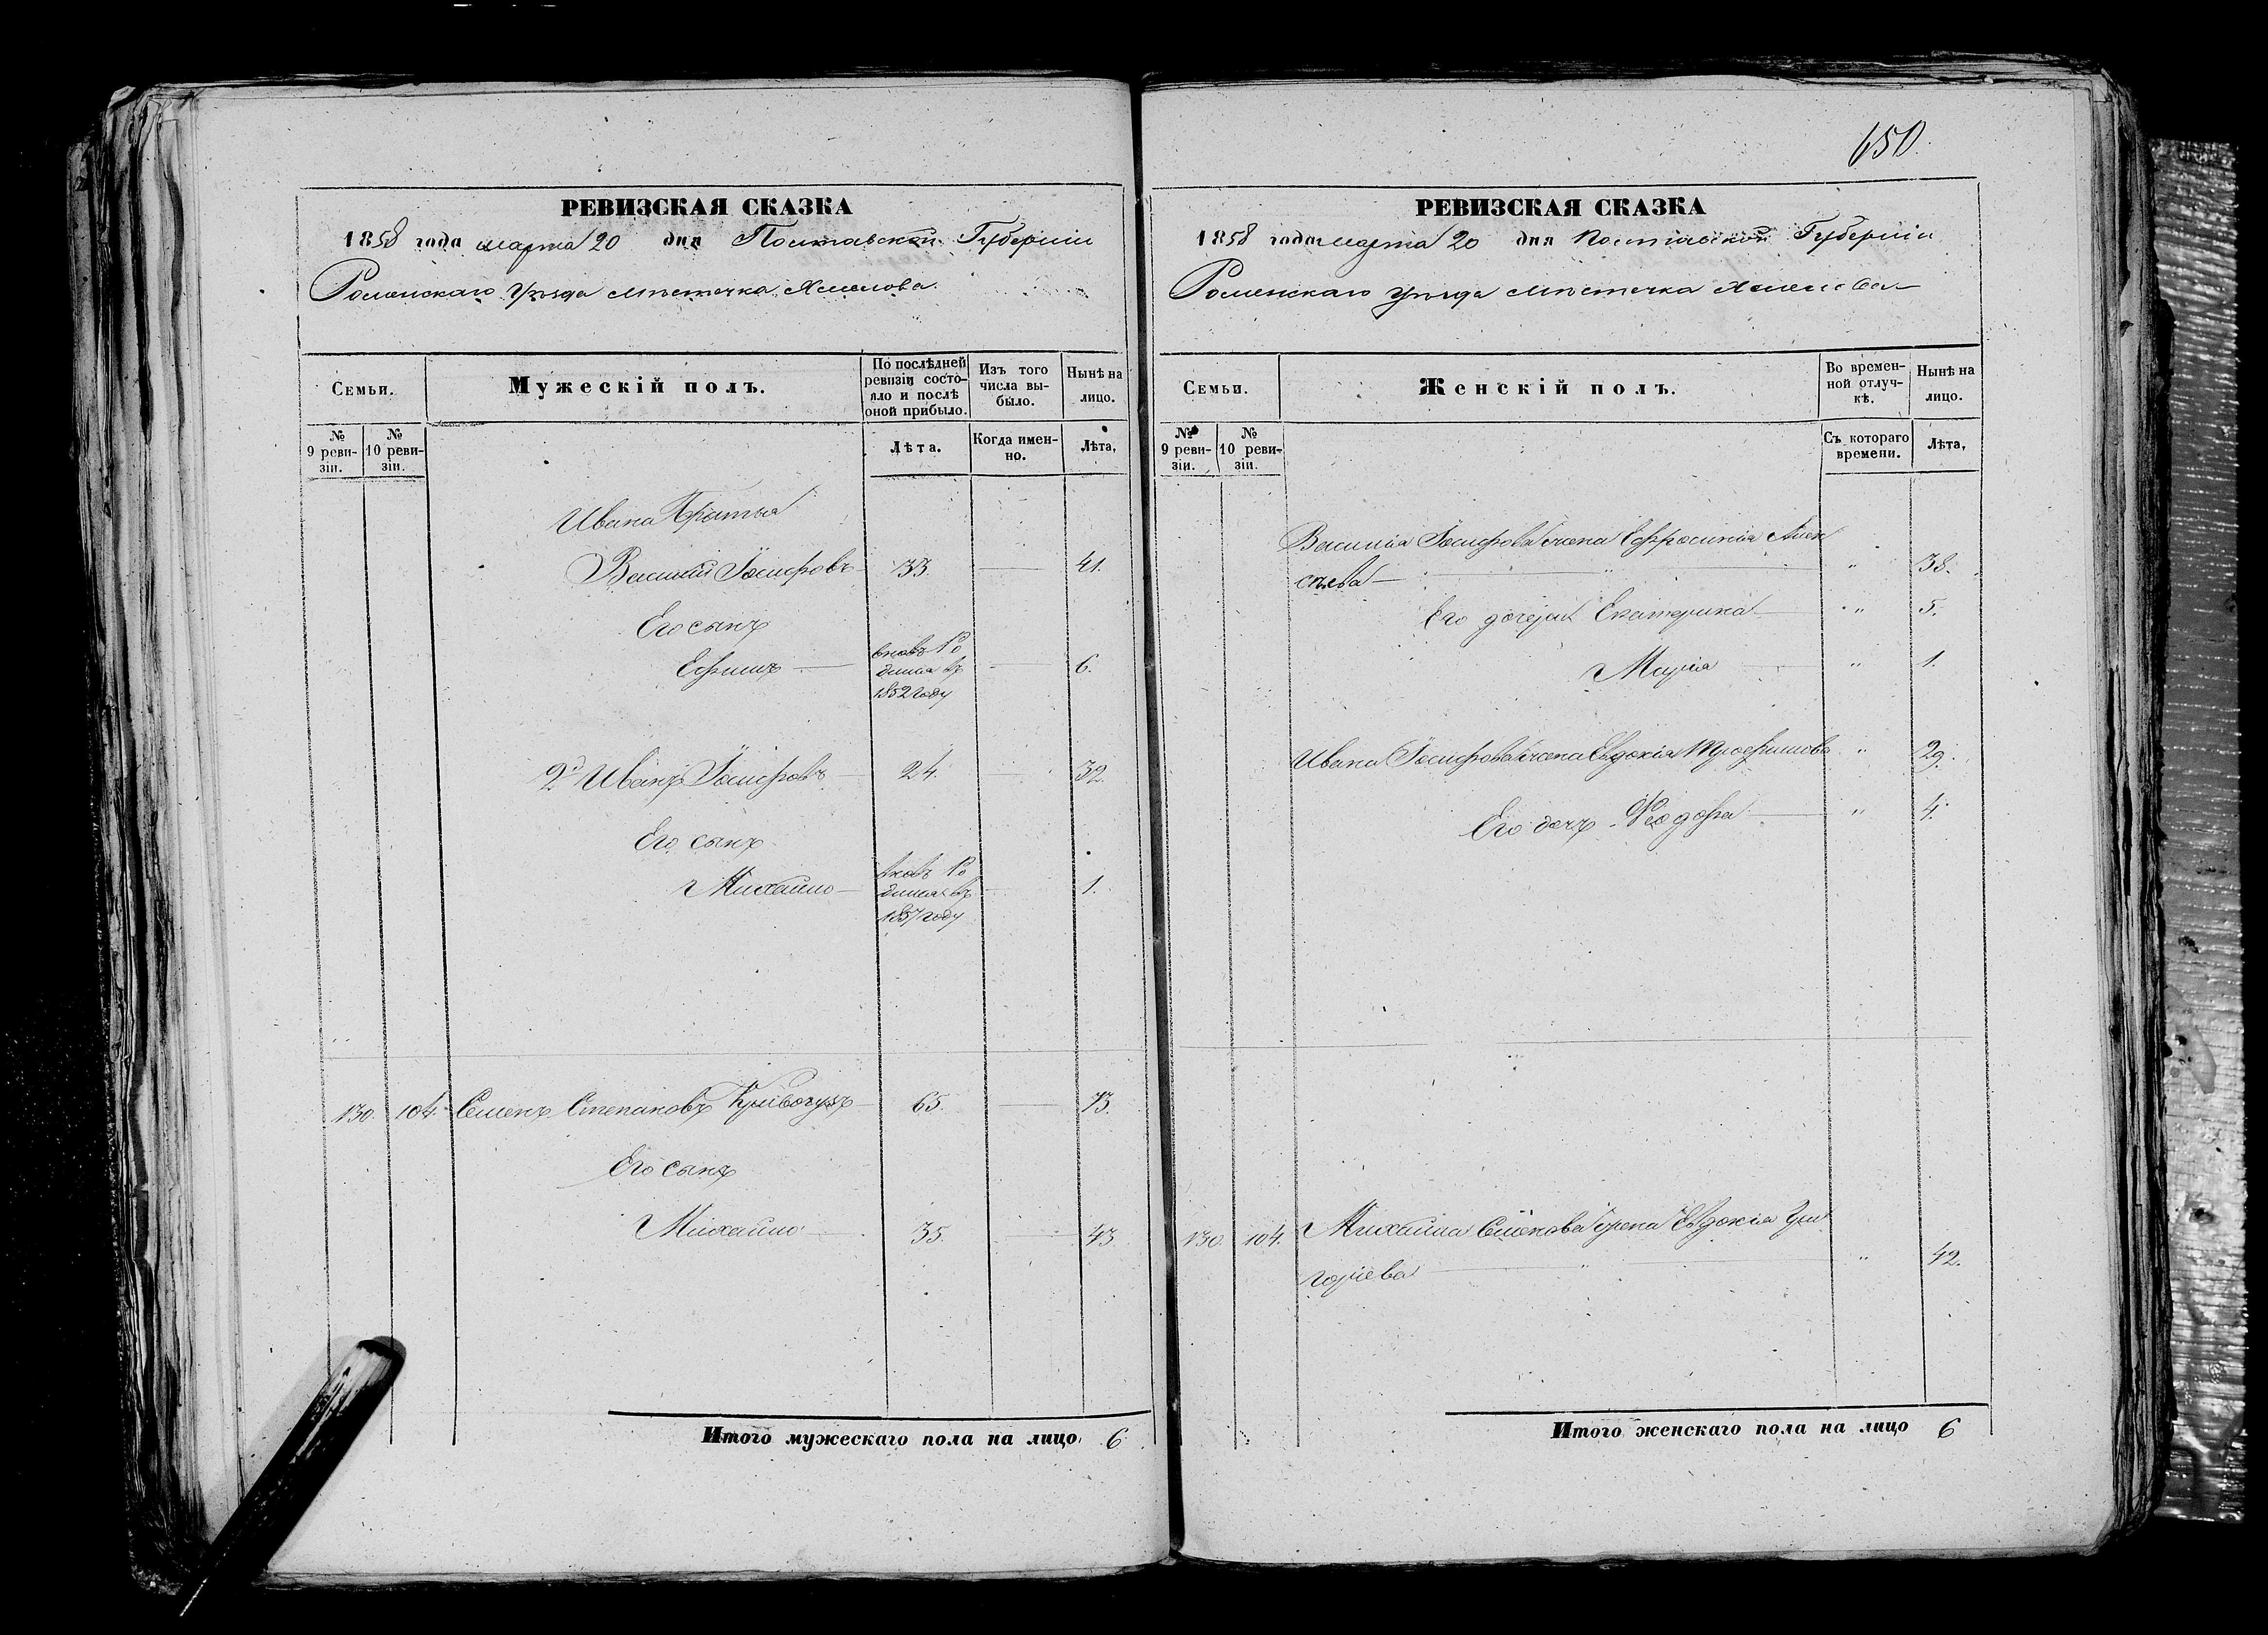 650.
РЕВИЗСКАЯ СКАЗКА
1858 года марта 20 дня Полтавской Губерніи
Роменскаго Уѣзда мѣстечка Хмелова
Семьи. Мужескій полъ. По послѣдней ревизіи состояло и послѣ оной прибыло. Изъ того числа выбыло. Нынѣ на лицо.
№ 9 ревизіи. № 10 ревизіи. Лѣта. Когда именно. Лѣта,
Ивана Братья
Василій Іосифовъ 33. 41.
Его сынъ
Ефимъ вновь Ро
дился въ 6.
1852 году
2й Иванъ Іосифовъ 24. 32.
Его сынъ
Михайло вновь Ро
дился въ 1.
1857 году
130. 104. Семенъ Степановъ 65. 73.
Его сынъ
Михайло 35. 43
Итого мужескаго пола на лицо 6
РЕВИЗСКАЯ СКАЗКА
1858 года марта 20 дня Полтавской Губерніи
Роменскаго Уѣзда мѣстечка Хмелова
Семьи. Женскій полъ. Во временной отлучкѣ. Нынѣ на лицо.
№ 9 ревизіи. № 10 ревизіи. Съ котораго времени. Лѣта,
Василія Іосифова жена Ефросинія Алек
сѣева " " 38.
Его дочери Екатерина " 5.
Марія " 1.
Ивана Іосифова жена Евдокія Трофимова " 29.
Его дочь Феодора " 4.
130. 104. Михайла Семенова жена Евдокія Гри
горіева " " 42.
Итого женскаго пола на лицо 6